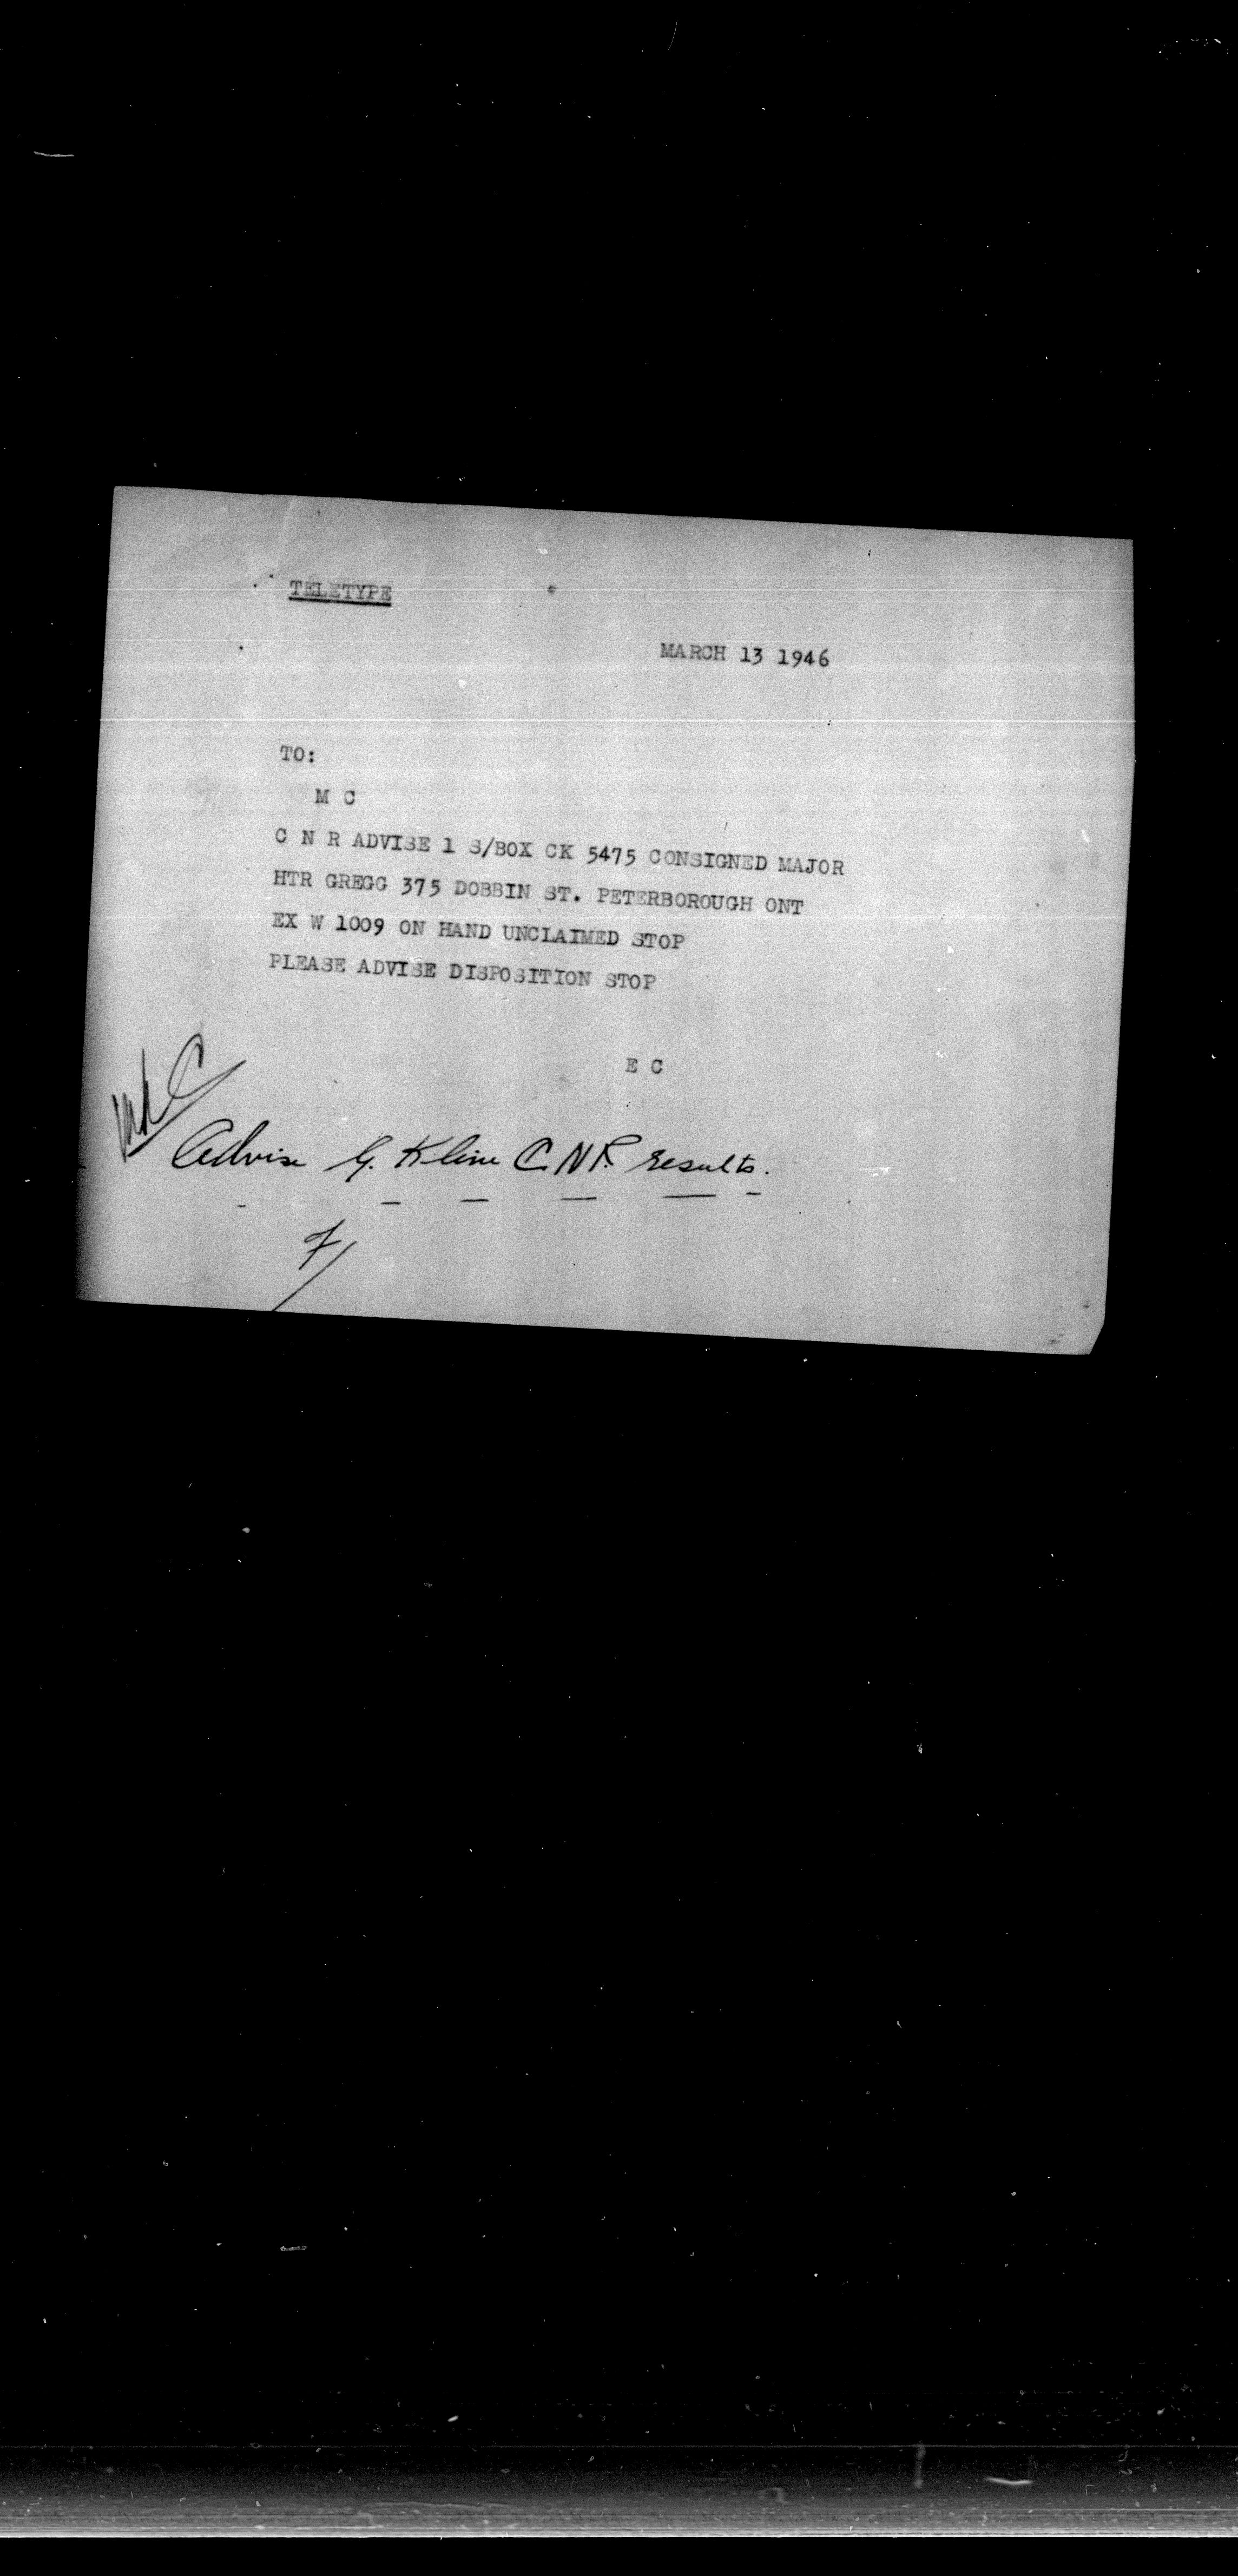 TELETYPE
MARCH 13 1946
TO:
M C
C N R ADVISE 1 S/BOX CK 5475 CONSIGNED MAJOR
HTR GREGG 375 DOBBIN ST. PETERBOROUGH ONT
EX W 1009 ON HAND UNCLAIMED STOP
PLEASE ADVISE DISPOSITION STOP
E C
Advise G. Kline C.N.R. results.